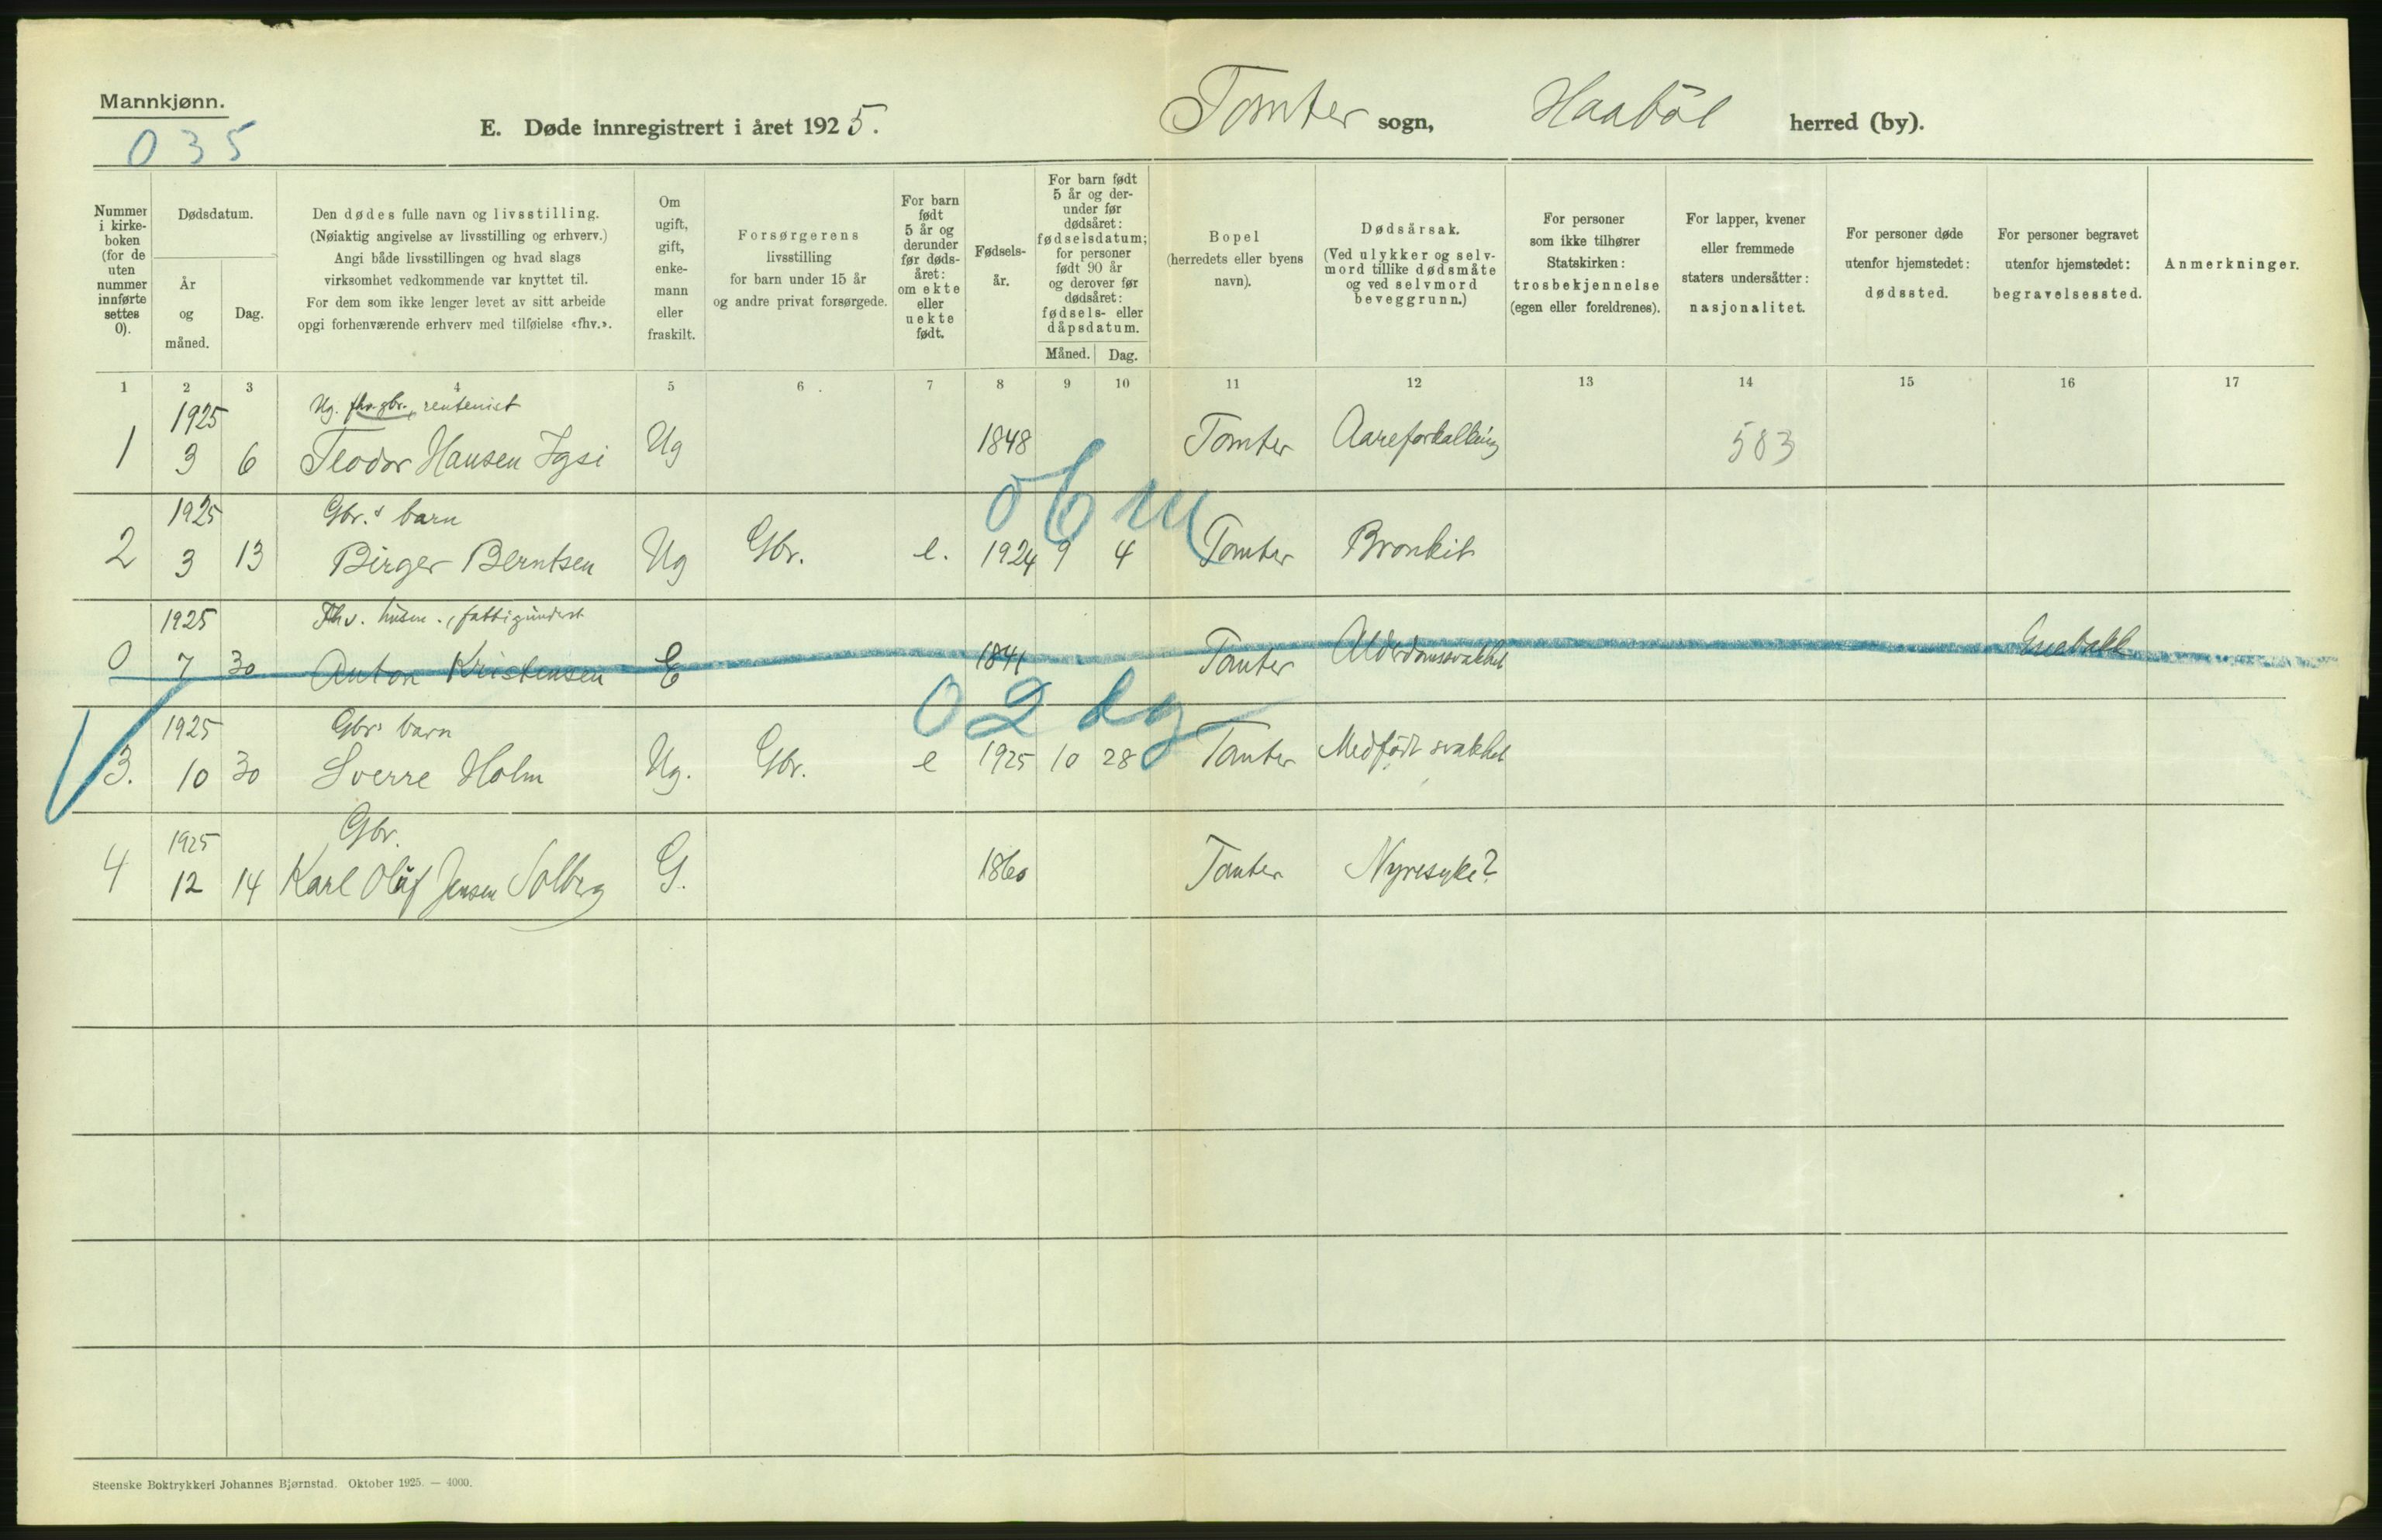 Mannkjønn.
035
E. Døde innregistrert i året 1925.
Tomter sogn, Haabøl herred (by).
Nummer i kirke-boken (for de uten nummer innførte settes 0).
Dødsdatum.
År og måned.
Dag.
Den dødes fulle navn og livsstilling.
(Nøiaktig angivelse av livsstilling og erhverv.)
Angi både livsstillingen og hvad slags
virksomhet vedkommende var knyttet til.
For dem som ikke lenger levet av sitt arbeide
opgi forhenværende erhverv med tilføielse «fhv.».
Om ugift, gift, enke-mann eller fraskilt.
Forsørgerens
livsstilling
for barn under 15 år
og andre privat forsørgede.
For barn født 5 år og derunder før døds-året: om ekte eller uekte født.
Fødsels-år.
For barn født 5 år og der-under før dødsåret: fødselsdatum; for personer født 90 år og derover før dødsåret: fødsels- eller dåpsdatum.
Måned.
Dag.
Bopel
(herredets eller byens
navn).
Dødsårsak.
(Ved ulykker og selv-
mord tillike dødsmåte
og ved selvmord
beveggrunn.)
For personer
som ikke tilhører
Statskirken:
trosbekjennelse
(egen eller foreldrenes).
For lapper, kvener
eller fremmede
staters undersåtter:
nasjonalitet.
For personer døde
utenfor hjemstedet:
dødssted.
For personer begravet
utenfor hjemstedet:
begravelsessted.
Anmerkninger.
1 2 3 4 5 6 7 8 9 10 11 12 13 14 15 16 17
1925 Ug. fhv. gbr., rentenist
1 3 6 Teodor Hansen Igsi Ug 1848 Tomter Aareforkalkning 583
06 m
1925 Gbr.s barn
2 3 13 Birger Berntsen Ug Gbr. e. 1924 9 4 Tomter Bronkit
1925 Fhv. husm., fattigunderst.
0 7 30 Anton Kristensen E 1841 Tomter Alderdomssvakhet Enebakk
02 dg
1925 Gbrs barn
3. 10 30 Sverre Holm Ug. Gbr. e 1925 10 28 Tomter Medfødt svakhet
1925 Gbr.
4 12 14 Karl Oluf Jensen Solberg G. 1860 Tomter Nyresyke?
Steenske Boktrykkeri Johannes Bjørnstad. Oktober 1925. — 4000.